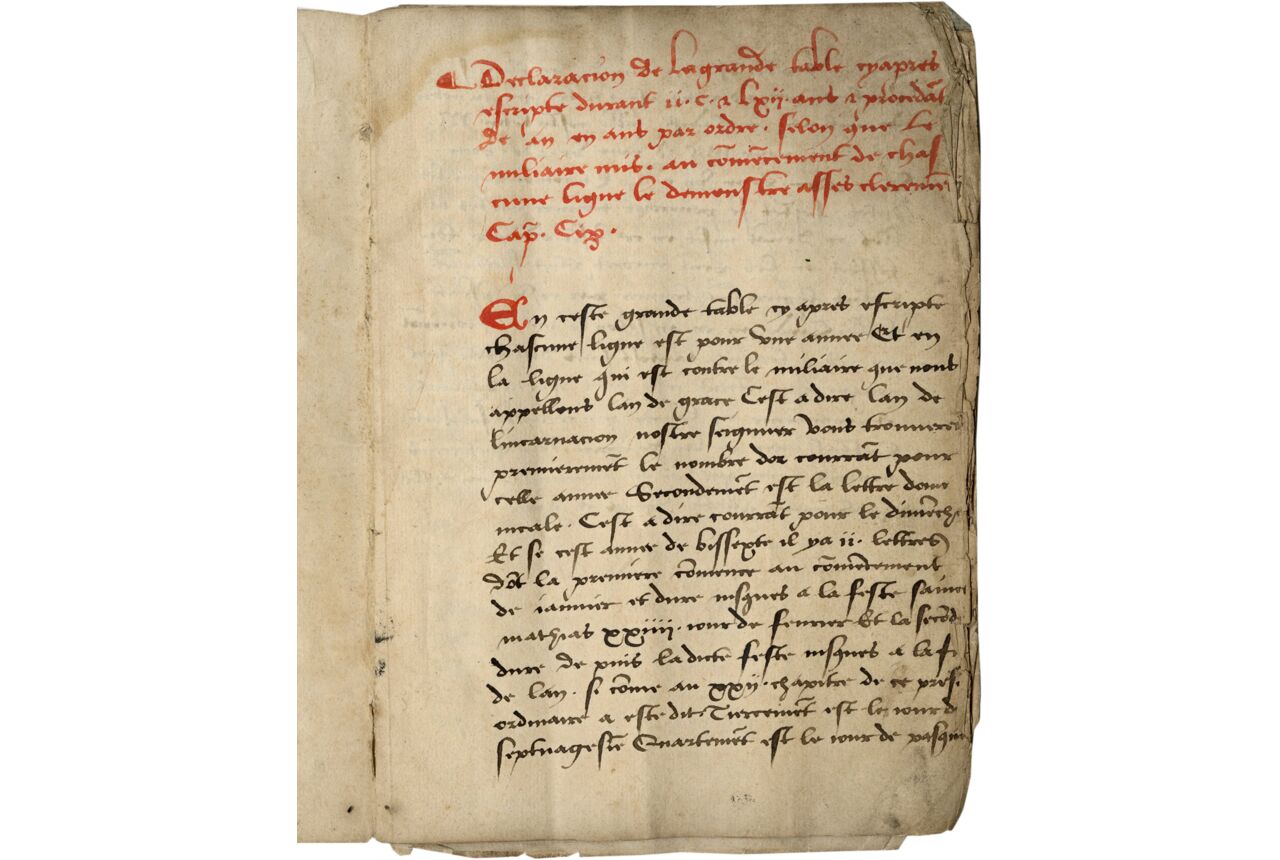 Declaracion de la grande table cy apres
escripte durant ii. c. ⁊ lxii. ans ⁊ procedãt
de an en ans par ordre. selon que le
miliaire mis. au cõmẽcement de chas
cune ligne le demonstre asses cleremẽ
Cap̃.
En ceste grande table cy apres escripte
chascune ligne est pour vne annee Et en
la ligne qui est contre le miliaire que nous
appellons lan de grace Cest a dire lan de
lincarnacion nostre seigneur vous trouueres
premieremẽt le nombre dor courrãt pour
celle annee Secondemẽt est la lettre domi
nicale. Cest a dire courrãt pour le dimẽche
Et se cest annee de bissexte il ya ii. lettres
dõt la premiere cõmence au cõmẽcement
de ianuier et dure iusques a la feste sainct
mathias xxiiii. iour de feurier Et la secõde
dure de puis ladicte feste iusques a la fi
de lan. si cõme au xxii. chapitre de ce pres.
ordinaire a este dit. Tiercemẽt est le iour d
septuagesie Quartemẽt est le iour de pasque